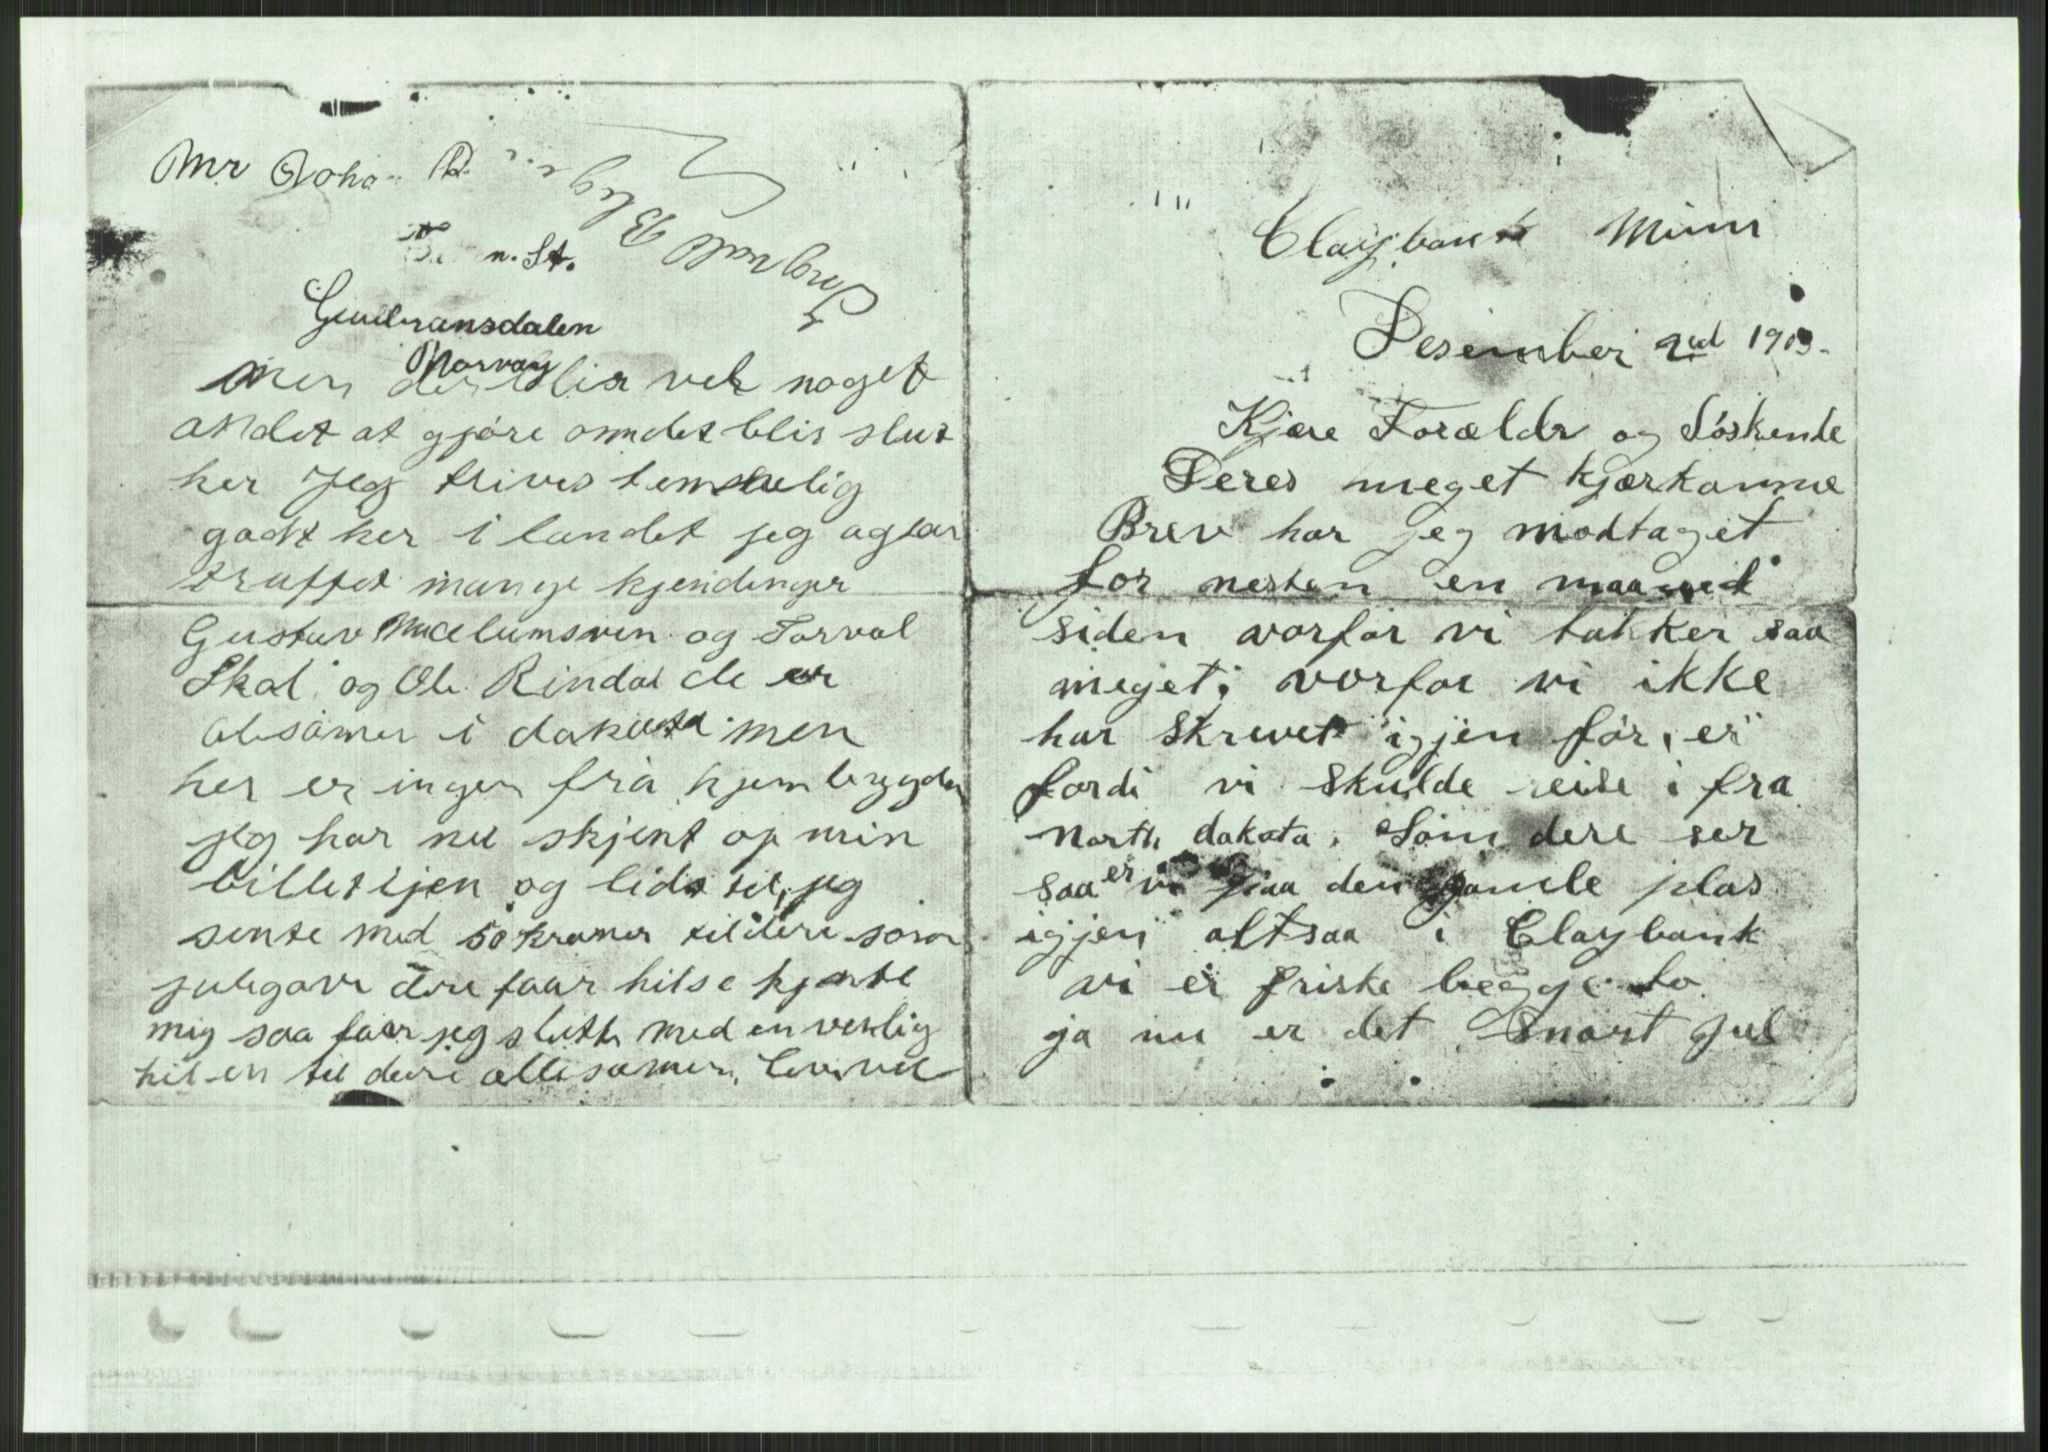 Claybank Minn
Desember 2nd 1903.
Kjære Forældr og Söskende
Deres meget kjærkomne
Brev har jeg modtaget
for nesten en maaned
siden vorfor vi takker saa
meget; vorfor vi ikke
har skrevet igjen för, er
fordi vi skulde reise i fra
North dakota. Som dere ser
saa er vi paa den gamle plas
igjen altsaa i Claybank
vi er friske begge to
ja nu er det Snart Jul
Mr
n. St.
Gudbransdalen
Norvay
Ingvald B
men der blir vel noget
andet at gjöre om det blir slut
her Jeg trives temmelig
godt her i landet jeg og har
truffet mange kjendinger
Gustav og Torval
Skal og Ole Rindal de er
allesamen i dakota men
her er ingen fra hjembygden
jeg har nu skjent op min
billet igjen og lidt til, jeg
sente med 50 kroner til dere som
julegave dere faar hilse kjente
mig saa faar jeg slutte med en venlig
hilsen til dere allesamen, Levvel